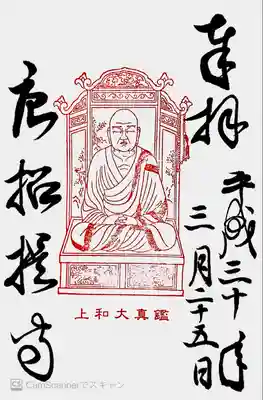 奉拝
平成三十年
三月二十五日
上和大真鑑
唐招提寺
CamScannerでスキャン